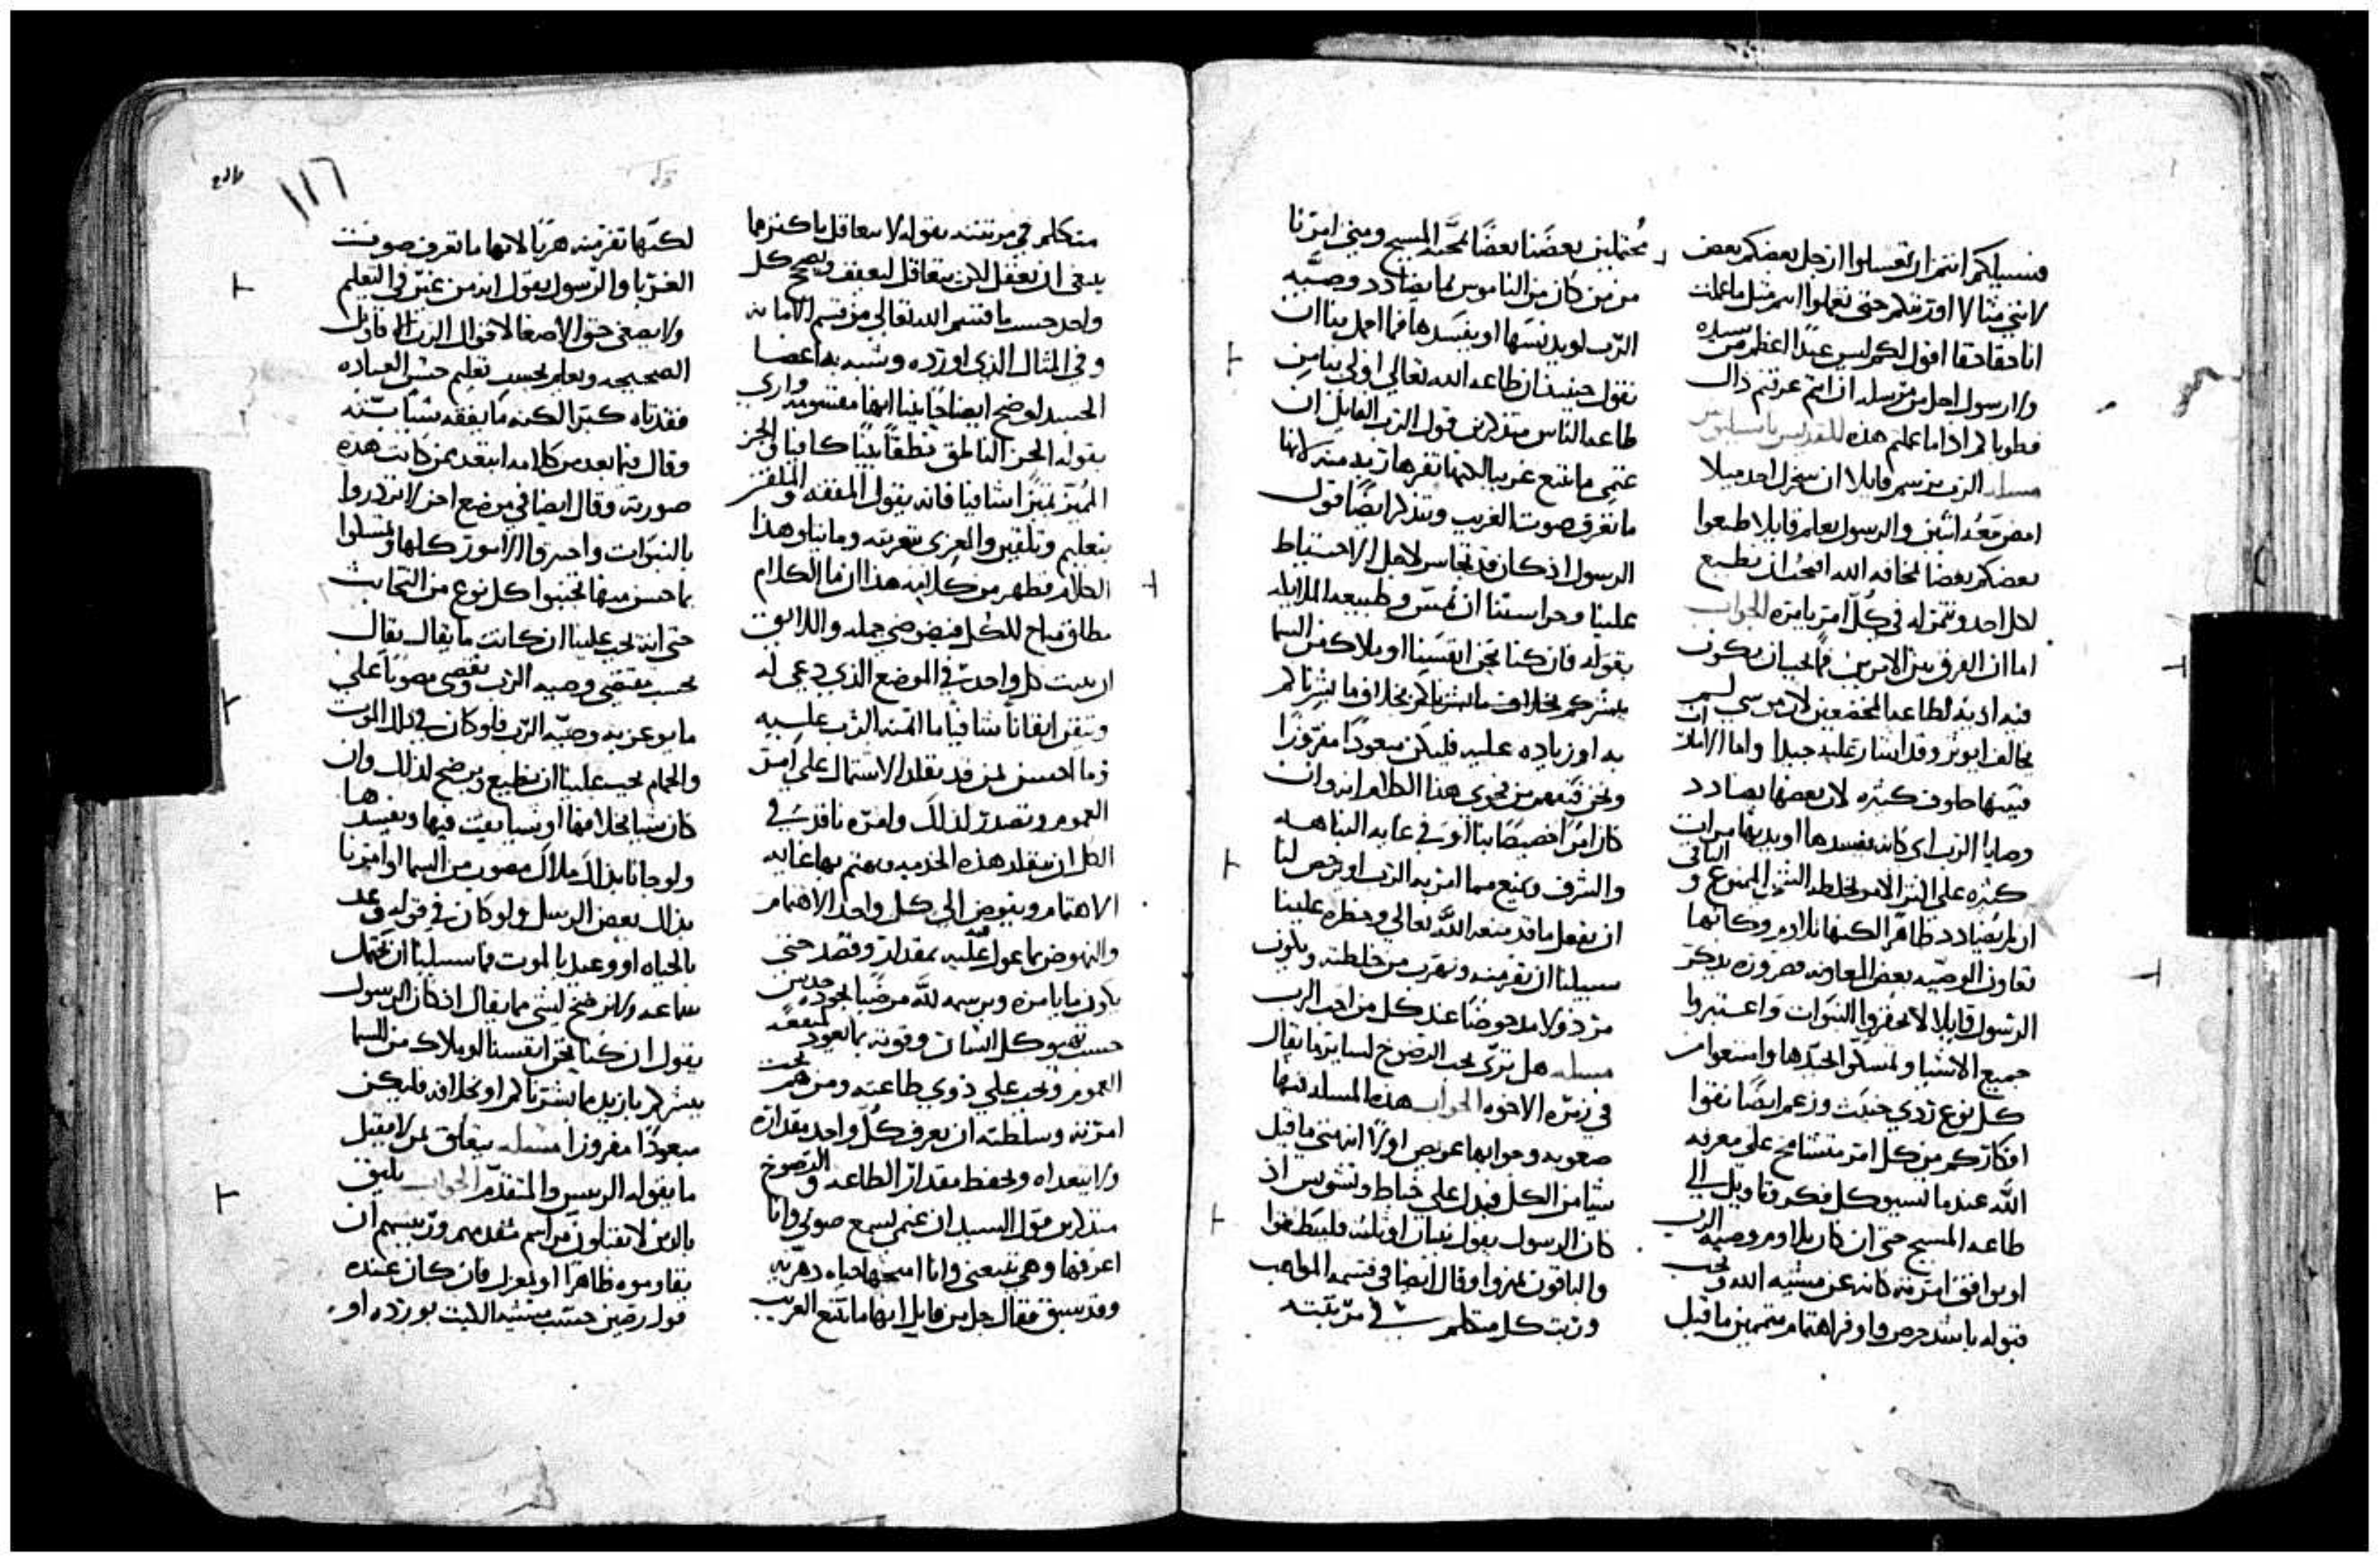 فسبيلكم انتم ان تغسلوا ارجل بعضكم بعض
لانني مثالا اوريتكم حتى تعملوا انتم مثل ما عملت
انا حقا حقا اقول لكم ليس عبدًا اعظم من سيده
ولا رسول اجل من مرسله ان انتم عرفتم ذاك
فطوباكم اذا ما عملتم هذه للقديس باسيليوس
مسله الرب يرسم قايلا ان سخرك احد ميلا
امض معه اثنين والرسول يعلم قايلا اطيعوا
بعضكم بعضا لمخافة الله افيجب ان نطيع
لكل احد ونتمر له في كل امر يامره الجواب
اما ان الفرق بين الامرين فما يجب ان يكون
فيه اذية لطاعة المخضعين لان موسي لم
يخالف ايوثر وقد اشار عليه جيدا واما ان الاوامر
فبينها خلوف كثيره لان بعضها يضادد
وصايا الرب اي كانه يفسدها او يدنها مرات
كثيره على النر الامر لخلطه الشي الممنوع والباقي
ان لم يضادد ظاهرا لكنها تلاوم وكانها
تعاون الوصيه بعض المعاونه ضروره بذكر
الرسول قايلا لا تحقروا النبوات واعتبروا
جميع الاشيا وتمسكوا الجيد ها وامتنعوا من
كل نوع ردي خبيث وزعم ايضا نقوا
افكاركم من كل امر متشامخ على معرفه
الله عندما نسبي كل فكر وتاويل الي
طاعه المسيح حتى ان كان يلاوم وصيه الرب
او يوافق امر منه كانه عن مشيه الله ويجب
قبوله باشد حرص واوفر اهتمام متممين ما قيل
محتملين بعضنا بعضًا لمحبه المسيح ومتى امرنا
من من كان من الناموس بما يضادد وصيه
الرب او يدنسها او يفسدها فما اجمل بنا ان
نقول حينيذ ان طاعه الله تعالي اولي بنا من
طاعه الناس متذكرين قول الرب القايل ان
غنمي ما تتبع غريبا لكنها تفر هاربه منه لانها
ما تعرف صوت الغريب ونتذكر ايضا قول
الرسول اذ كان قد تجاسر لاجل الاحتياط
علينا وحراستنا ان يمس وطبيعه الملايكه
بقوله فان كنا نحن انفسنا او ملاك من السما
يبشركم بخلاف ما بشرناكم بخلاف ما بشرناكم
به او زياده عليه فليكن مبعودًا مفروزًا
ونحن فنفهم من فحوي هذا الكلام انه وان
كان امرًا خصيصًا بنا او في غايه النباهه
والشرف ويمنع مما امر به الرب او يرخص لنا
ان نفعل ما قد منعه الله تعالي وحظره علينا
سبيلنا ان نفر منه ونهرب من خلطته ويكون
مرذولا مدحوضًا عند كل من احب الرب
مسله هل تري يجب الرضوخ لساير ما يقال
في زمره الاخوه الجواب هذه المسله فيها
صعوبه وجوابها عويص اولا انهني ما قيل
شيا من الكل فيدل على خباط وتشويس اذ
كان الرسول يقول نبيان او ثلثه فلينطقوا
والباقون يميزوا وقال ايضا في قسمه المواهب
ورتب كل متكلم في مرتبته
متكلم في مرتبته بقوله لا يتعاقل باكثر مما
ينبغي ان يعقل لان يتعاقل ليعفف ويصح كل
واحد حسب ما قسم الله تعالي من قسم الامانه
وفي المثال الذي اورده وشبه به اعضا
الجسد اوضح ايضاحًا بينا انها مقسومه واري
بقوله الجز الناطق نطقًا بينًا كافيا في الجز
المميز تميزًا شافيا فانه يقول المفقه والملقن
بتعليم وتلقين والمعزي بتعزيته وما يتلو هذا
الكلام فظهر من كلامه هذا ان ما الكلام
مطلق مباح للكل فيضوض جمله واللايق
ان يثبت كل واحد في الموضع الذي دعي له
ويتقن ايقانًا شافيًا ما ائتمنه الرب عليه
فما احسن لمن قد تقلد الاشتمال علي امر
العموم وتصدر لذلك وامره نافذ في
الكل ان يتقلد هذه الخدمه ويهتم بها غايه
الاهتمام ويفوض الي كل واحد الاهتمام
والنهوض بما عول عليه بمقدار وقصد حتى
يكون ما يامره ويرسمه لله مرضيًا لجوده حدس
حسب تهيو كل انسان وقوته بما يعود لمنفعه
العموم ويجب علي ذوي طاعته ومن هم تحت
امرته وسلطته ان يعرف كل واحد مقداره
ولا يتعداه ويحفظ مقدار الطاعه والرضوخ
متذكرين قول السيد ان غنمي تسمع صوتي وانا
اعرفها وهي تتبعني وانا امنحها حياه دهريه
وقد سبق فقال جل من قايل انها ما تتبع الغريب
١١٦
لكنها تفر منه هربًا لانها ما تعرف صوت
الغربا والرسول يقول ان من غيّر في التعليم
ولا يصغي حق الاصغا لاقوال الرب الاقاويل
الصحيحه ويعلم بحسب تعليم حسن العباده
فقد تاه كبرًا لكنه ما يفقه شيا بته
وقال فيما بعد من كلامه ابتعد عمن كانت هذه
صورته وقال ايضا في موضع اخر لا تزدروا
بالنبوات واخبروا الامور كلها وتمسكوا
بما حسن منها تجنبوا كل نوع من التخابث
حتى انه يجب علينا ان كانت ما يقال يقال
بحسب مقتضي وصيه الرب ونفضي مصوبًا علي
ما يوعز به وصيه الرب فلو كان في ذلك الموت
والحمام يجب علينا ان نطيع ونرضخ لذلك وان
كان شيا بخلافها او شيا يعيث فيها ويفسدها
ولو جانا بذلك ملاك مصون من السما او امرنا
بذلك بعض الرسل ولو كان في قوله وعد
بالحياه او وعيد بالموت فما سبيلنا ان نحتمل
سماعه ولا نرضخ لشي مما يقال اذ كان الرسول
يقول ان كنا نحن انفسنا او ملاك من السما
يبشركم بازيد مما بشرناكم او بخلافه فليكن
مبعودًا مفروزًا مسله يتعلق بمن لا يقبل
ما يقوله الرييس والمتقدم الجواب يليق
بالذين لا يقبلون مراسم متقدمهم ورييسهم ان
يقاوموه ظاهرا او بمعزل فان كان عنده
قول رصين حسب مشيه الكتب يورده او